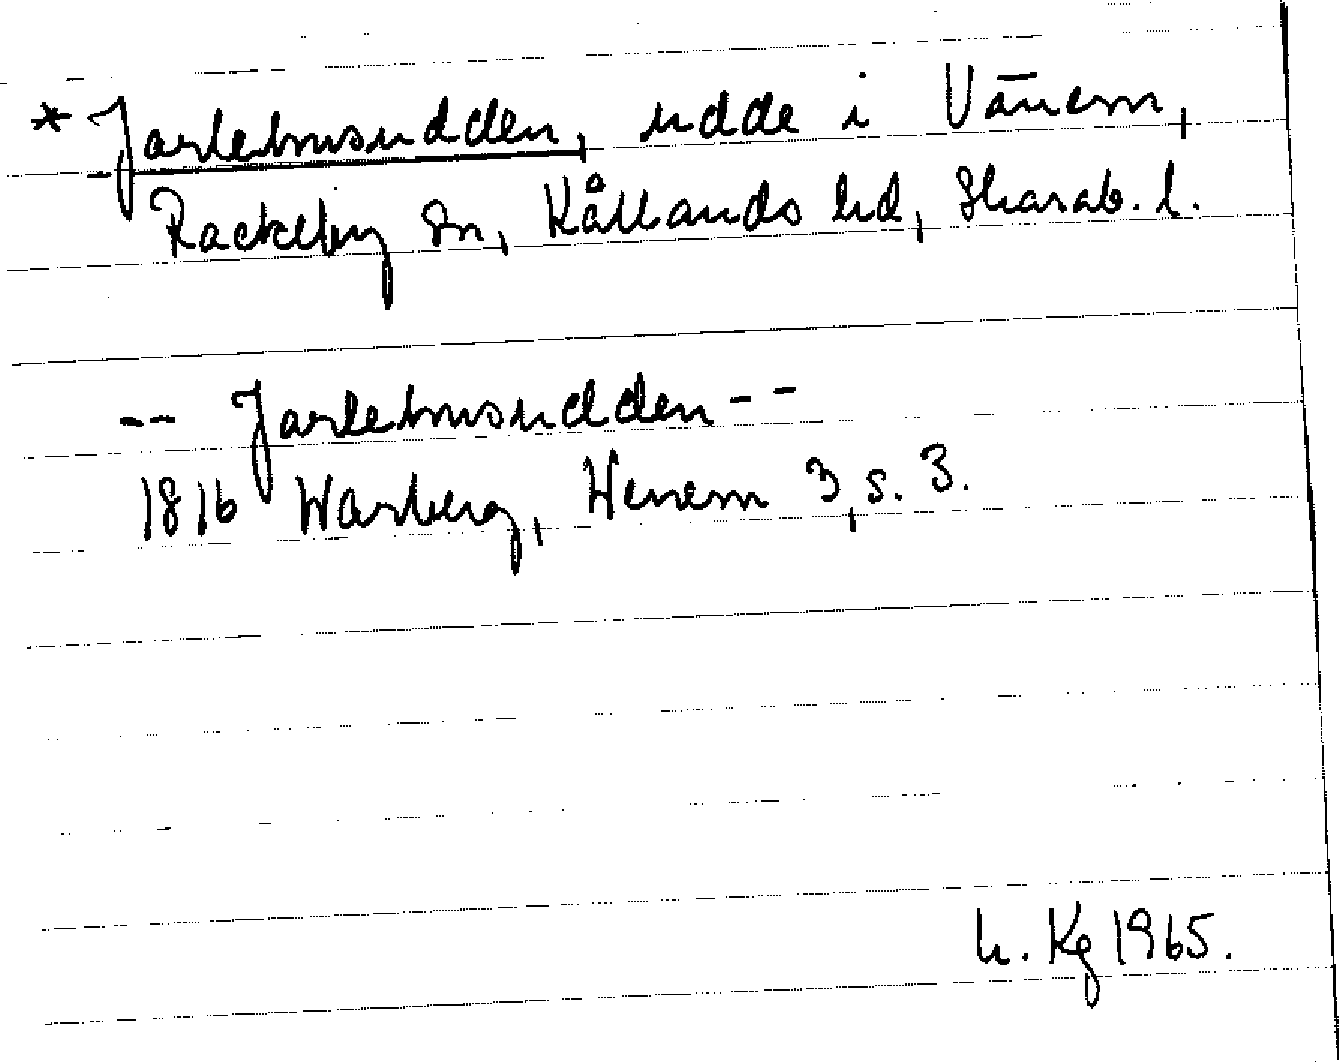 * Jarlehusudden, udde i Vänern,
Rackeby sn, Kållands hd, Skarab. l.
-- Jarlehusudden --
1816 Warberg, Wenern 3, s. 3.
h. Kg 1965.